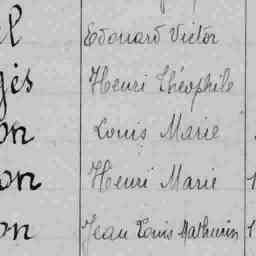 el Edouard Victor
gés Henri Théophile
on Louis Marie
on Henri Marie 1
on Jean Louis Mathurin 1